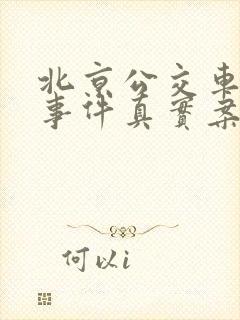 北京公交車
事件真實案
何以i